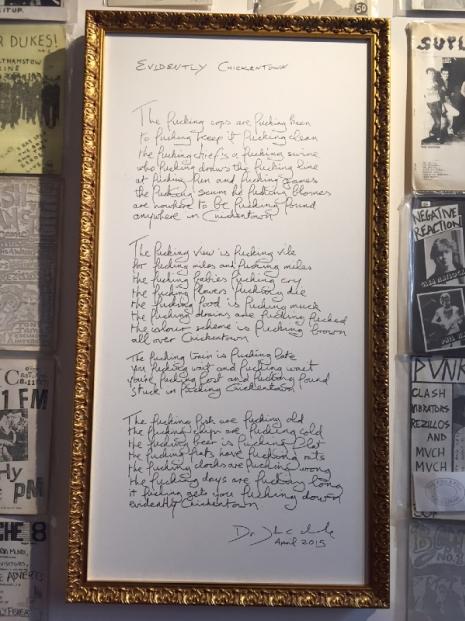 EVIDENTLY CHICKENTOWN
The fucking cops are fucking keen
to fucking keep it fucking clean
the fucking chief's a fucking swine
who fucking draws the fucking line
at fucking fun and fucking games
the fucking scum he fucking blames
are nowhere to be fucking found
anywhere in Chickentown
The fucking view is fucking vile
for fucking miles and fucking miles
the fucking babies fucking cry
the fucking flowers fucking die
the fucking food is fucking muck
the fucking drains are fucking fucked
the colour scheme is fucking brown
all over Chickentown
The fucking train is fucking late
you fucking wait and fucking wait
you're fucking lost and fucking found
stuck in fucking Chickentown
The fucking pies are fucking old
the fucking chips are fucking cold
the fucking beer is fucking flat
the fucking flats have fucking rats
the fucking clocks are fucking wrong
the fucking days are fucking long
it fucking gets you fucking down
evidently Chickentown
April 2015
DUKES!
NEGATIVE
REACTION
CLASH
REZILLOS
AND
MUCH
MUCH